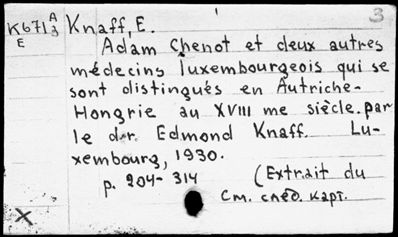 3
K671 A/3 Knaff, E.
E
Adam Chenot et deux autres
médecins luxembourgeois qui se
sont distingués en Autriche-
Hongrie au XVIII me siècle par
le dr. Edmond Knaff. Lu-
xembourg, 1930.
p. 204-314 (Extrait du
См. след. карт.
X